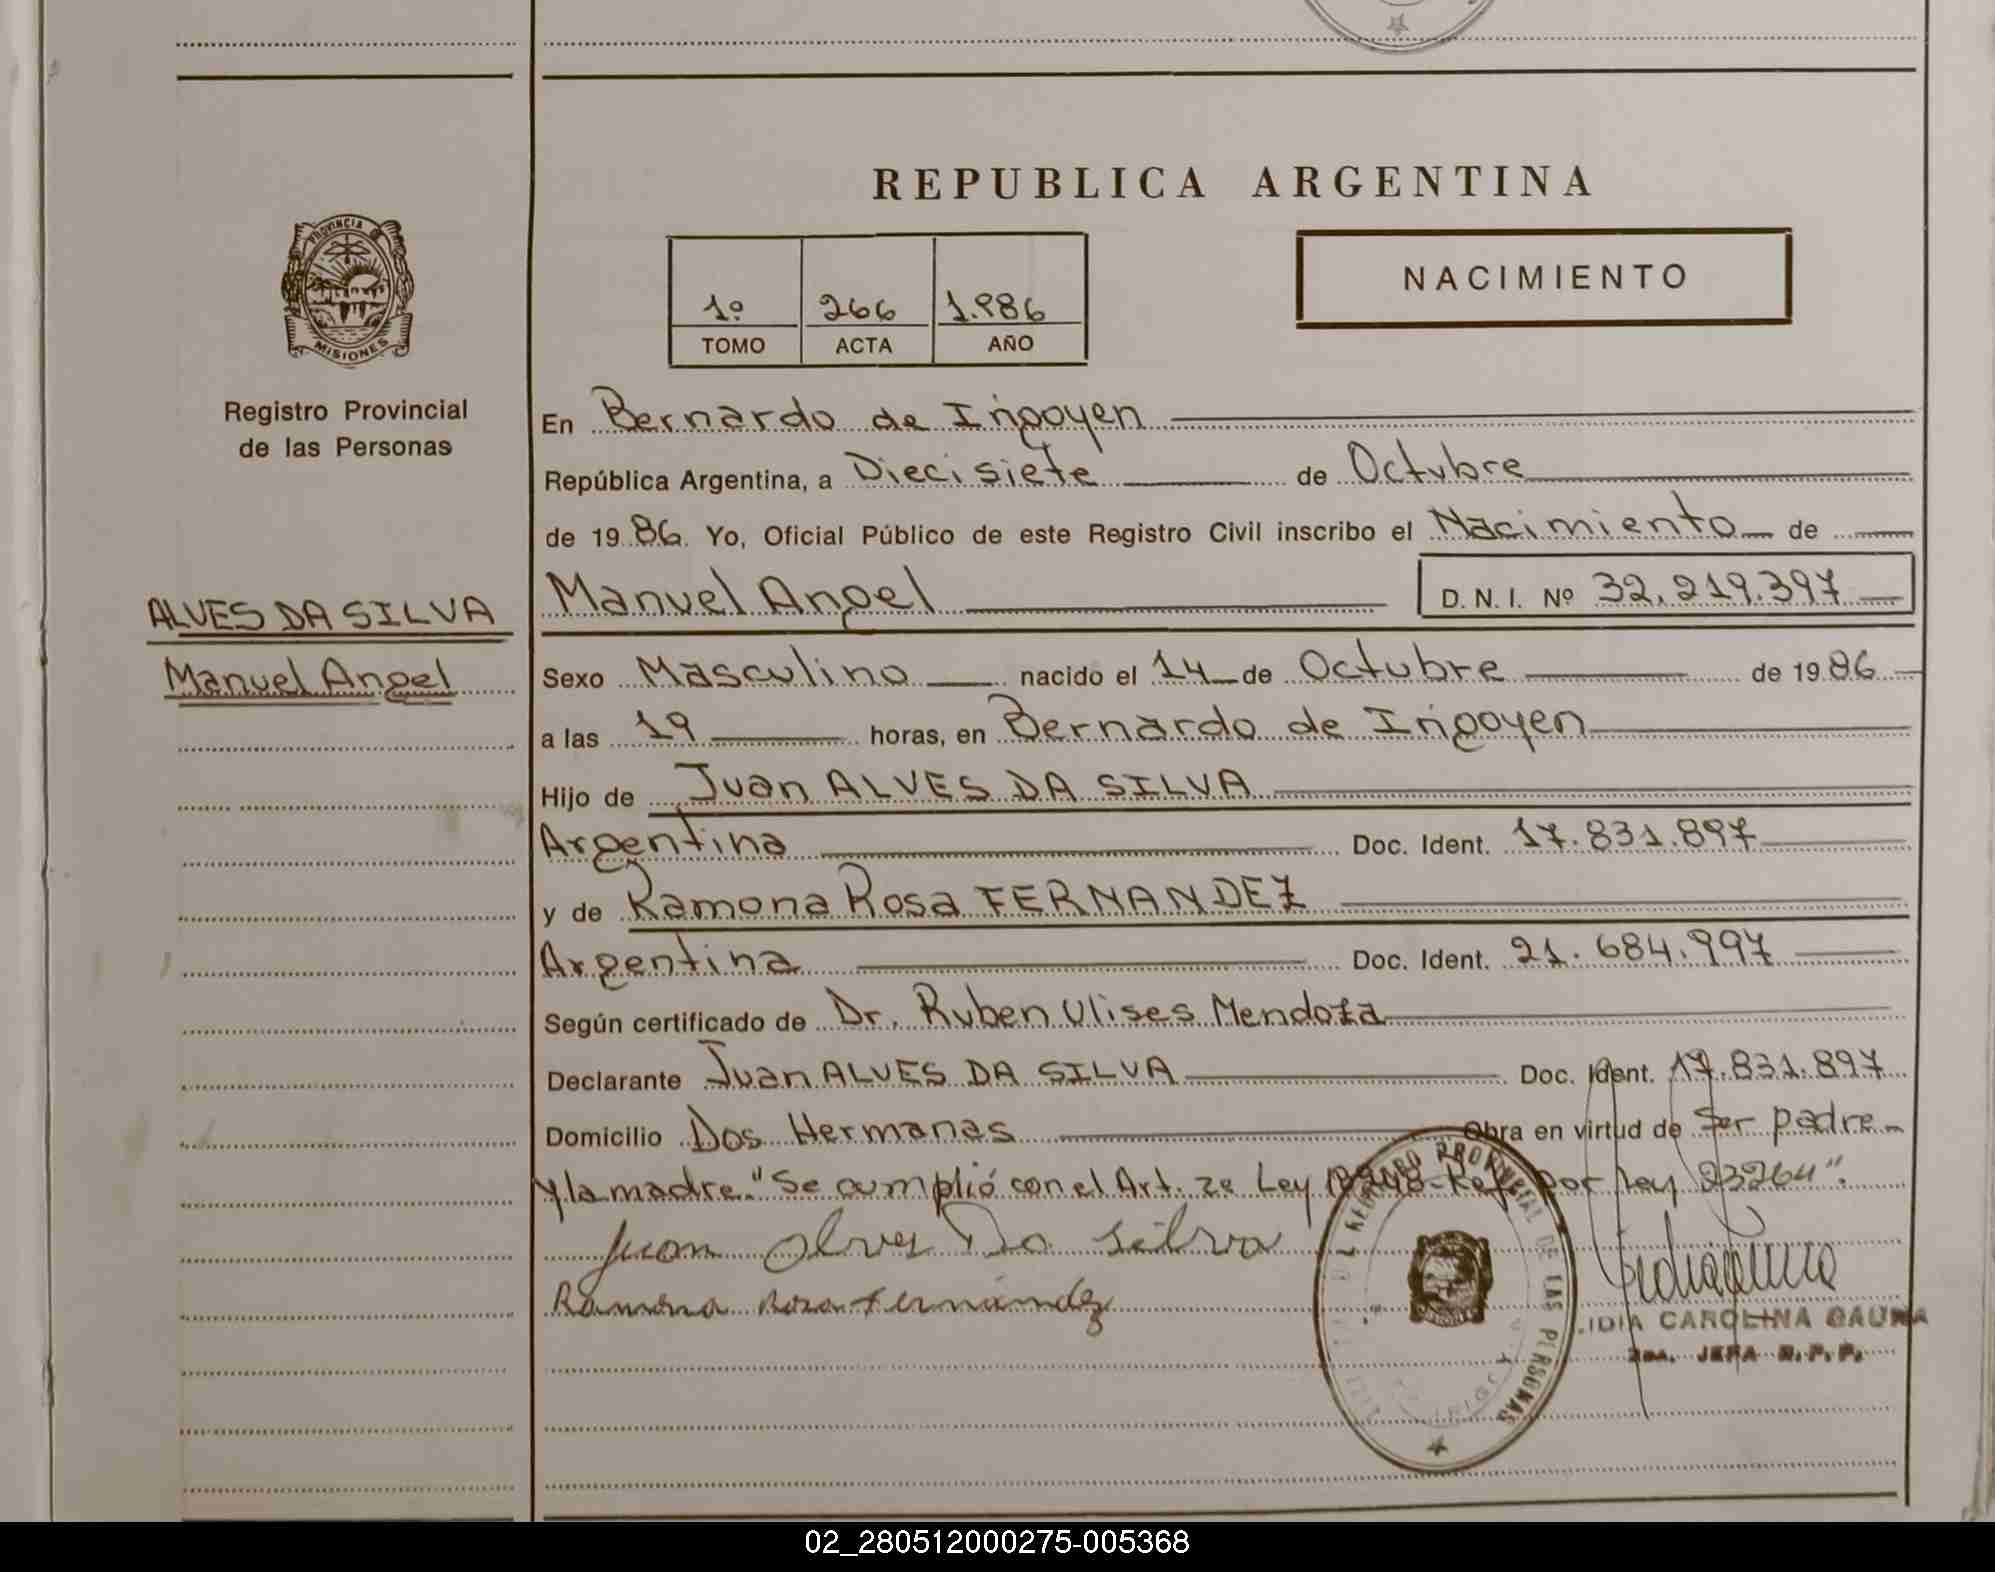 REPUBLICA ARGENTINA
NACIMIENTO
1º 266 1.986
TOMO ACTA AÑO
PROVINCIA DE
MISIONES
Registro Provincial
de las Personas
En Bernardo de Irigoyen
República Argentina, a Diecisiete de Octubre
de 1986. Yo, Oficial Público de este Registro Civil inscribo el Nacimiento de
Manuel Angel D. N. I. Nº 32.219.397
ALVES DA SILVA
Manuel Angel
Sexo Masculino nacido el 14 de Octubre de 1986
a las 19 horas, en Bernardo de Irigoyen
Hijo de Juan ALVES DA SILVA
Argentina Doc. Ident. 17.831.897
y de Ramona Rosa FERNANDEZ
Argentina Doc. Ident. 21.684.997
Según certificado de Dr. Ruben Ulises Mendoza
Declarante Juan ALVES DA SILVA Doc. Ident. 17.831.897
Domicilio Dos Hermanas Obra en virtud de Ser padre
y la madre. "Se cumplió con el Art. 2e Ley 18248- por Ley 23264".
Juan Alves Da Silva
Ramona Rosa Fernández
REGISTRO PROVINCIAL DE LAS PERSONAS
LIDIA CAROLINA GAUNA
JEFA R. P. P.
02_280512000275-005368